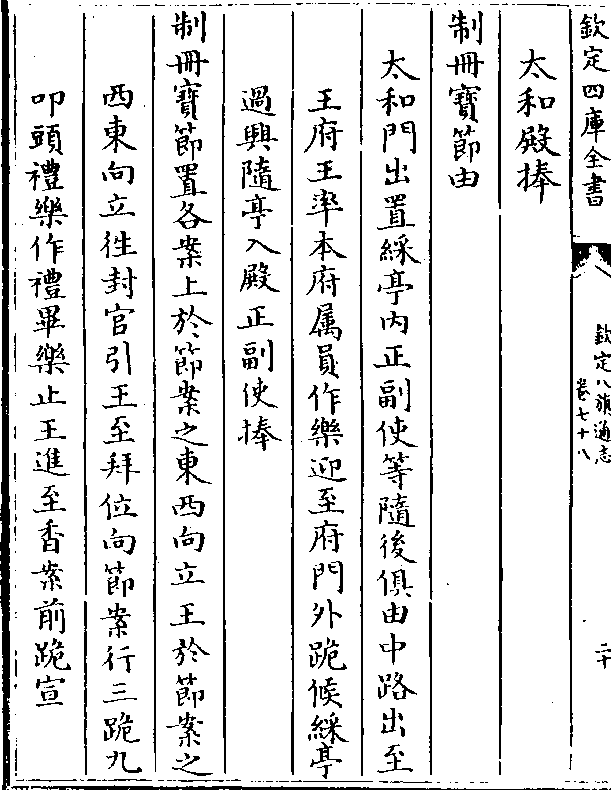 欽定四庫全書
欽定八旗通志
卷七十八
二十
太和殿捧
制冊寳節由
太和門出置綵亭内正副使等隨後俱由中路出至
王府王率本府属員作樂迎至府門外跪候綵亭
過興隨亭入殿正副使捧
制冊寳節置各案上於節案之東西向立王於節案之
西東向立徃封官引王至拜位向節案行三跪九
叩頭禮樂作禮畢樂止王進至香案前跪宣